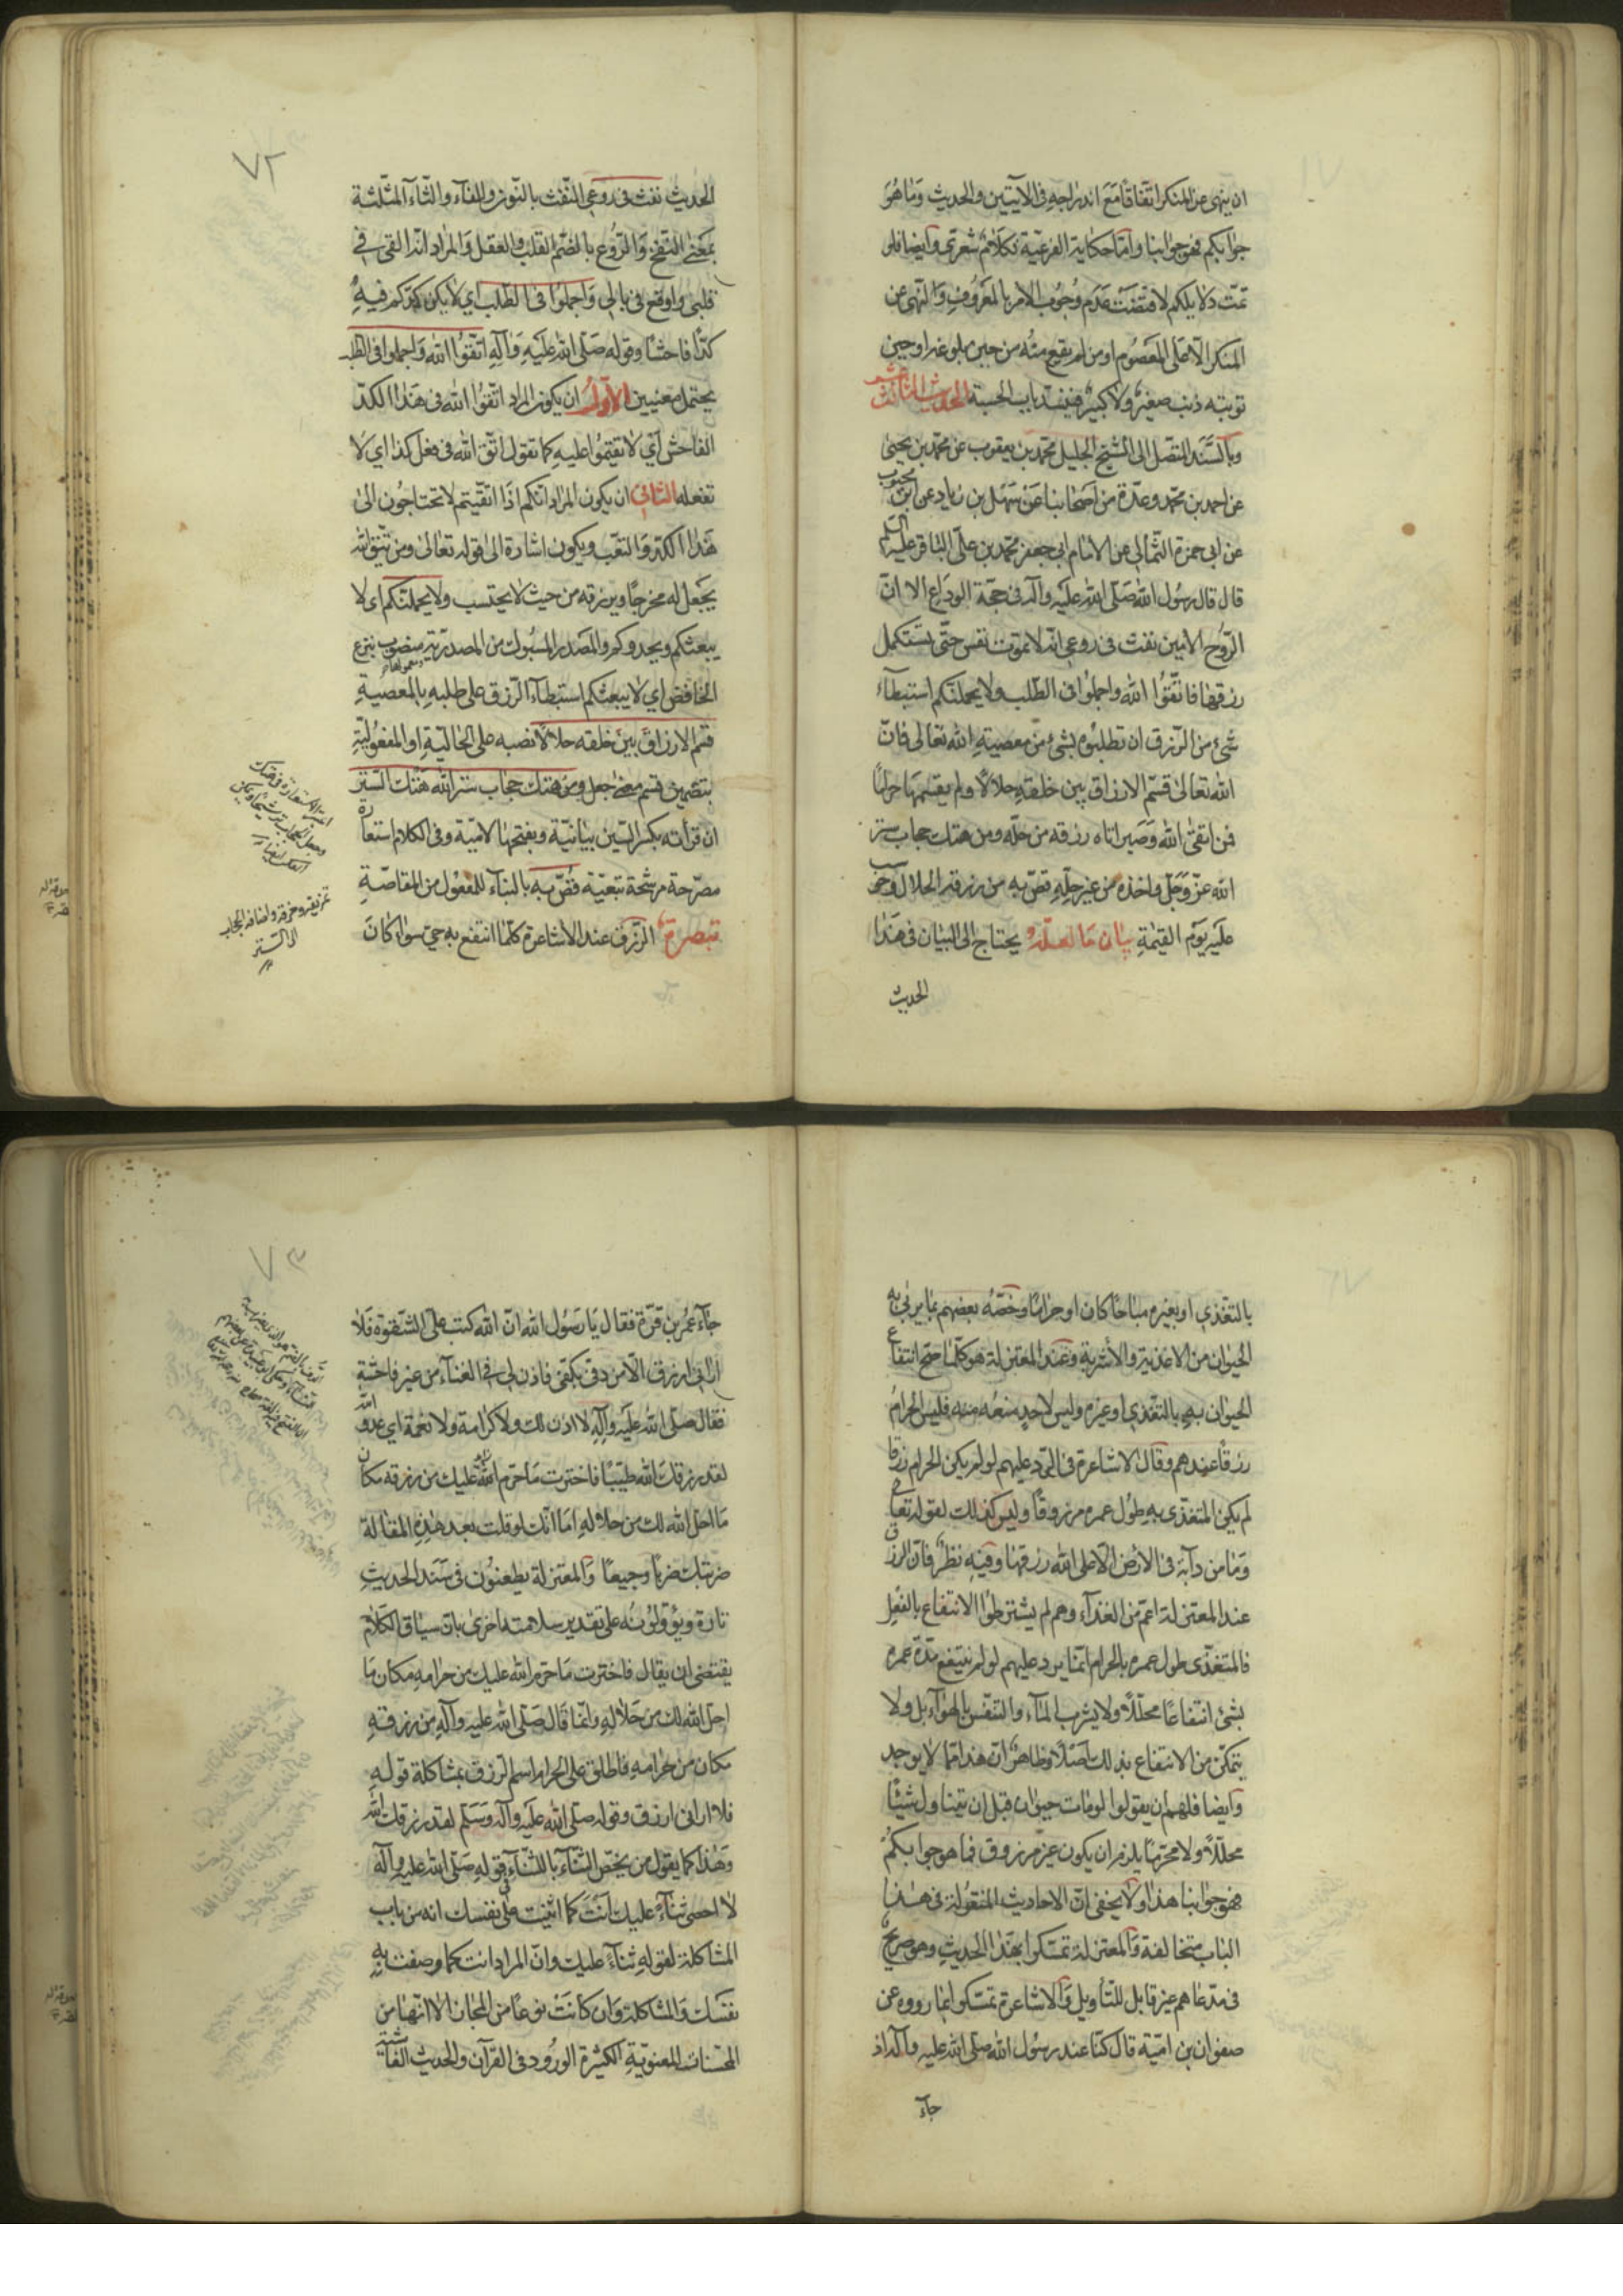 ان ينهى عن المنكر اتفاقا مع اندراجه فى الآيتين والحديث وما هو
جوابكم فهو جوابنا واما حكاية الفرعية فكلام شعرى وايضا فلو
تمت دلايلكم لاقتضت عدم وجوب الامر بالمعروف والنهى عن
المنكر الا على المعصوم او من لم يقع منه من حين بلوغه او حين
توبته ذنب صغير ولا كبير فينسد باب الحسبة الحديث الثالث عشر
وبالسند المتصل الى الشيخ الجليل محمد بن يعقوب عن محمد بن يحيى
عن احمد بن محمد وعدة من اصحابنا عن سهل بن زياد عن ابن محبوب
عن ابى حمزة الثمالى عن الامام ابى جعفر محمد بن على الباقر عليه السلم
قال قال رسول الله صلى الله عليه وآله فى حجة الوداع الا ان
الروح الامين نفث فى روعى انه لا تموت نفس حتى تستكمل
رزقها فاتقوا الله واجملوا فى الطلب ولا يحملنكم استبطاء
شئ من الرزق ان تطلبوه بشئ من معصية الله تعالى فان
الله تعالى قسم الارزاق بين خلقه حلالا ولم يقسمها حراما
فمن اتقى الله وصبر اتاه رزقه من حله ومن هتك حجاب ستر
الله عز وجل واخذه من غير حله قص به من رزقه الحلال وحوسب
عليه يوم القيمة بيان ما لعله يحتاج الى البيان فى هذا
الحديث
٧٢
الحديث نفث فى روعى النفث بالنون والفاء والثاء المثلثة
بمعنى النفخ والروع بالضم القلب والعقل والمراد انه القى فى
قلبى واوقع فى بالى واجملوا فى الطلب اى لا يكن كدكم فيه
كدا فاحشا وقوله صلى الله عليه وآله اتقوا الله واجملوا فى الطلب
يحتمل معنيين الاول ان يكون المراد اتقوا الله فى هذا الكد
الفاحش اى لا تقيموا عليه كما تقول اتق الله فى فعل كذا اى لا
تفعله الثانى ان يكون المراد انكم اذا اتقيتم لا تحتاجون الى
هذا الكد والتعب ويكون اشارة الى قوله تعالى ومن يتق الله
يجعل له مخرجا ويرزقه من حيث لا يحتسب ولا يحملنكم اى لا
يبعثكم ويحدوكم والمصدر المسبوك من المصدرية ومعمولها منصوب بنزع
الخافض اى لا يبعثكم استبطاء الرزق على طلبه بالمعصية
قسم الارزاق بين خلقه حلالا نصبه على الحالية او المفعولية
بتضمين قسم معنى جعل ومن هتك حجاب ستر الله هتك الستر
تمزيقه وخرقه واضافة الحجاب
الى الستر
ان قرأته بكسر السين بيانية وبفتحها لامية وفى الكلام استعارة
مصرحة مرشحة تبعية قص به بالبناء للمفعول من المقاصة
تبصرة الرزق عند الاشاعرة كلما انتفع به حى سواء كان
بالتغذى او بغيره مباحا كان او حراما وخصه بعضهم بما يربى به
الحيوان من الاغذية والأشربة وعند المعتزلة هو كلما صح انتفاع
الحيوان به بالتغذى او غيره وليس لاحد منعه منه فليس الحرام
رزقا عندهم وقال الاشاعرة فى الرد عليهم لو لم يكن الحرام رزقا
لم يكن المتغذى به طول عمره مرزوقا وليس كذلك لقوله تعالى
وما من دآبة فى الارض الا على الله رزقها وفيه نظر فان الرزق
عند المعتزلة اعم من الغذاء وهم لم يشترطوا الانتفاع بالفعل
فالمتغذى طول عمره بالحرام انما يرد عليهم لو لم ينتفع مدة عمره
بشئ انتفاعا محللا ولا يشرب الماء والتنفس بالهواء بل ولا
يتمكن من الانتفاع بذلك اصلا وظاهر ان هذا مما لا يوجد
وايضا فلهم ان يقولوا لو مات حيوان قبل ان يتناول شيئا
محللا ولا محرما يلزم ان يكون غير مرزوق فما هو جوابكم
فهو جوابنا هذا ولا يخفى ان الاحاديث المنقولة فى هذا
الباب متخالفة والمعتزلة تمسكوا بهذا الحديث وهو صريح
فى مدعاهم غير قابل للتأويل والاشاعرة تمسكوا بما رووه عن
صفوان بن امية قال كنا عند رسول الله صلى الله عليه وآله اذ
جآء
٧٣
جآء عمر بن قرة فقال يا رسول الله ان الله كتب على الشقوة فلا
ارانى ارزق الا من دفى بكفى فاذن لى فى الغناء من غير فاحشة
فقال صلى الله عليه وآله لا اذن لك ولا كرامة ولا نعمة اى عدو الله
لقد رزقك الله طيبا فاخترت ما حرم الله عليك من رزقه مكان
ما احل الله لك من حلاله اما انك لو قلت بعد هذه المقالة
ضربتك ضربا وجيعا والمعتزلة يطعنون فى سند الحديث
تارة ويؤولونه على تقدير سلامته اخرى بان سياق الكلام
يقتضى ان يقال فاخترت ما حرم الله عليك من حرامه مكان ما
احل الله لك من حلاله وانما قال صلى الله عليه وآله من رزقه
مكان من حرامه فاطلق على الحرام اسم الرزق بمشاكلة قوله
فلا ارانى ارزق وقوله صلى الله عليه وآله وسلم لقد رزقك الله
وهذا كما يقول من يخص الثناء باللسان فى قوله صلى الله عليه وآله
لا احصى ثناء عليك انت كما اثنيت على نفسك انه من باب
المشاكلة لقوله ثناء عليك وان المراد انت كما وصفت به
نفسك والمشاكلة وان كانت نوعا من المجاز الا انها من
المحسنات المعنوية الكثيرة الورود فى القرآن والحديث الفاشية